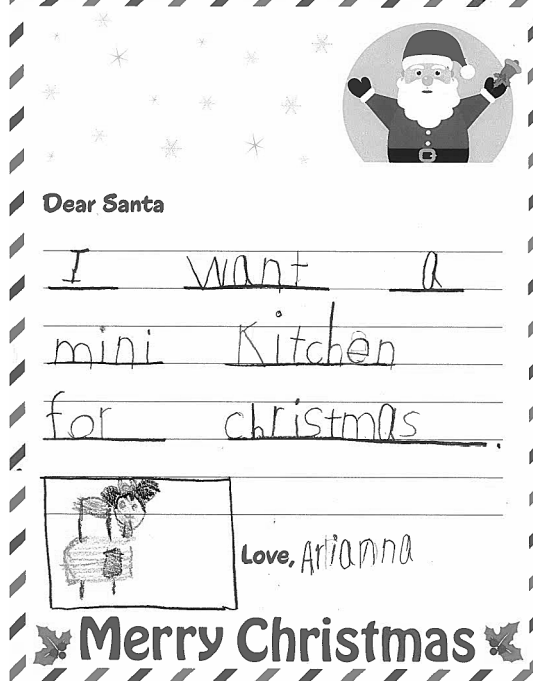 Dear Santa
I want a
mini Kitchen
for christmas.
Love, Arianna
Merry Christmas